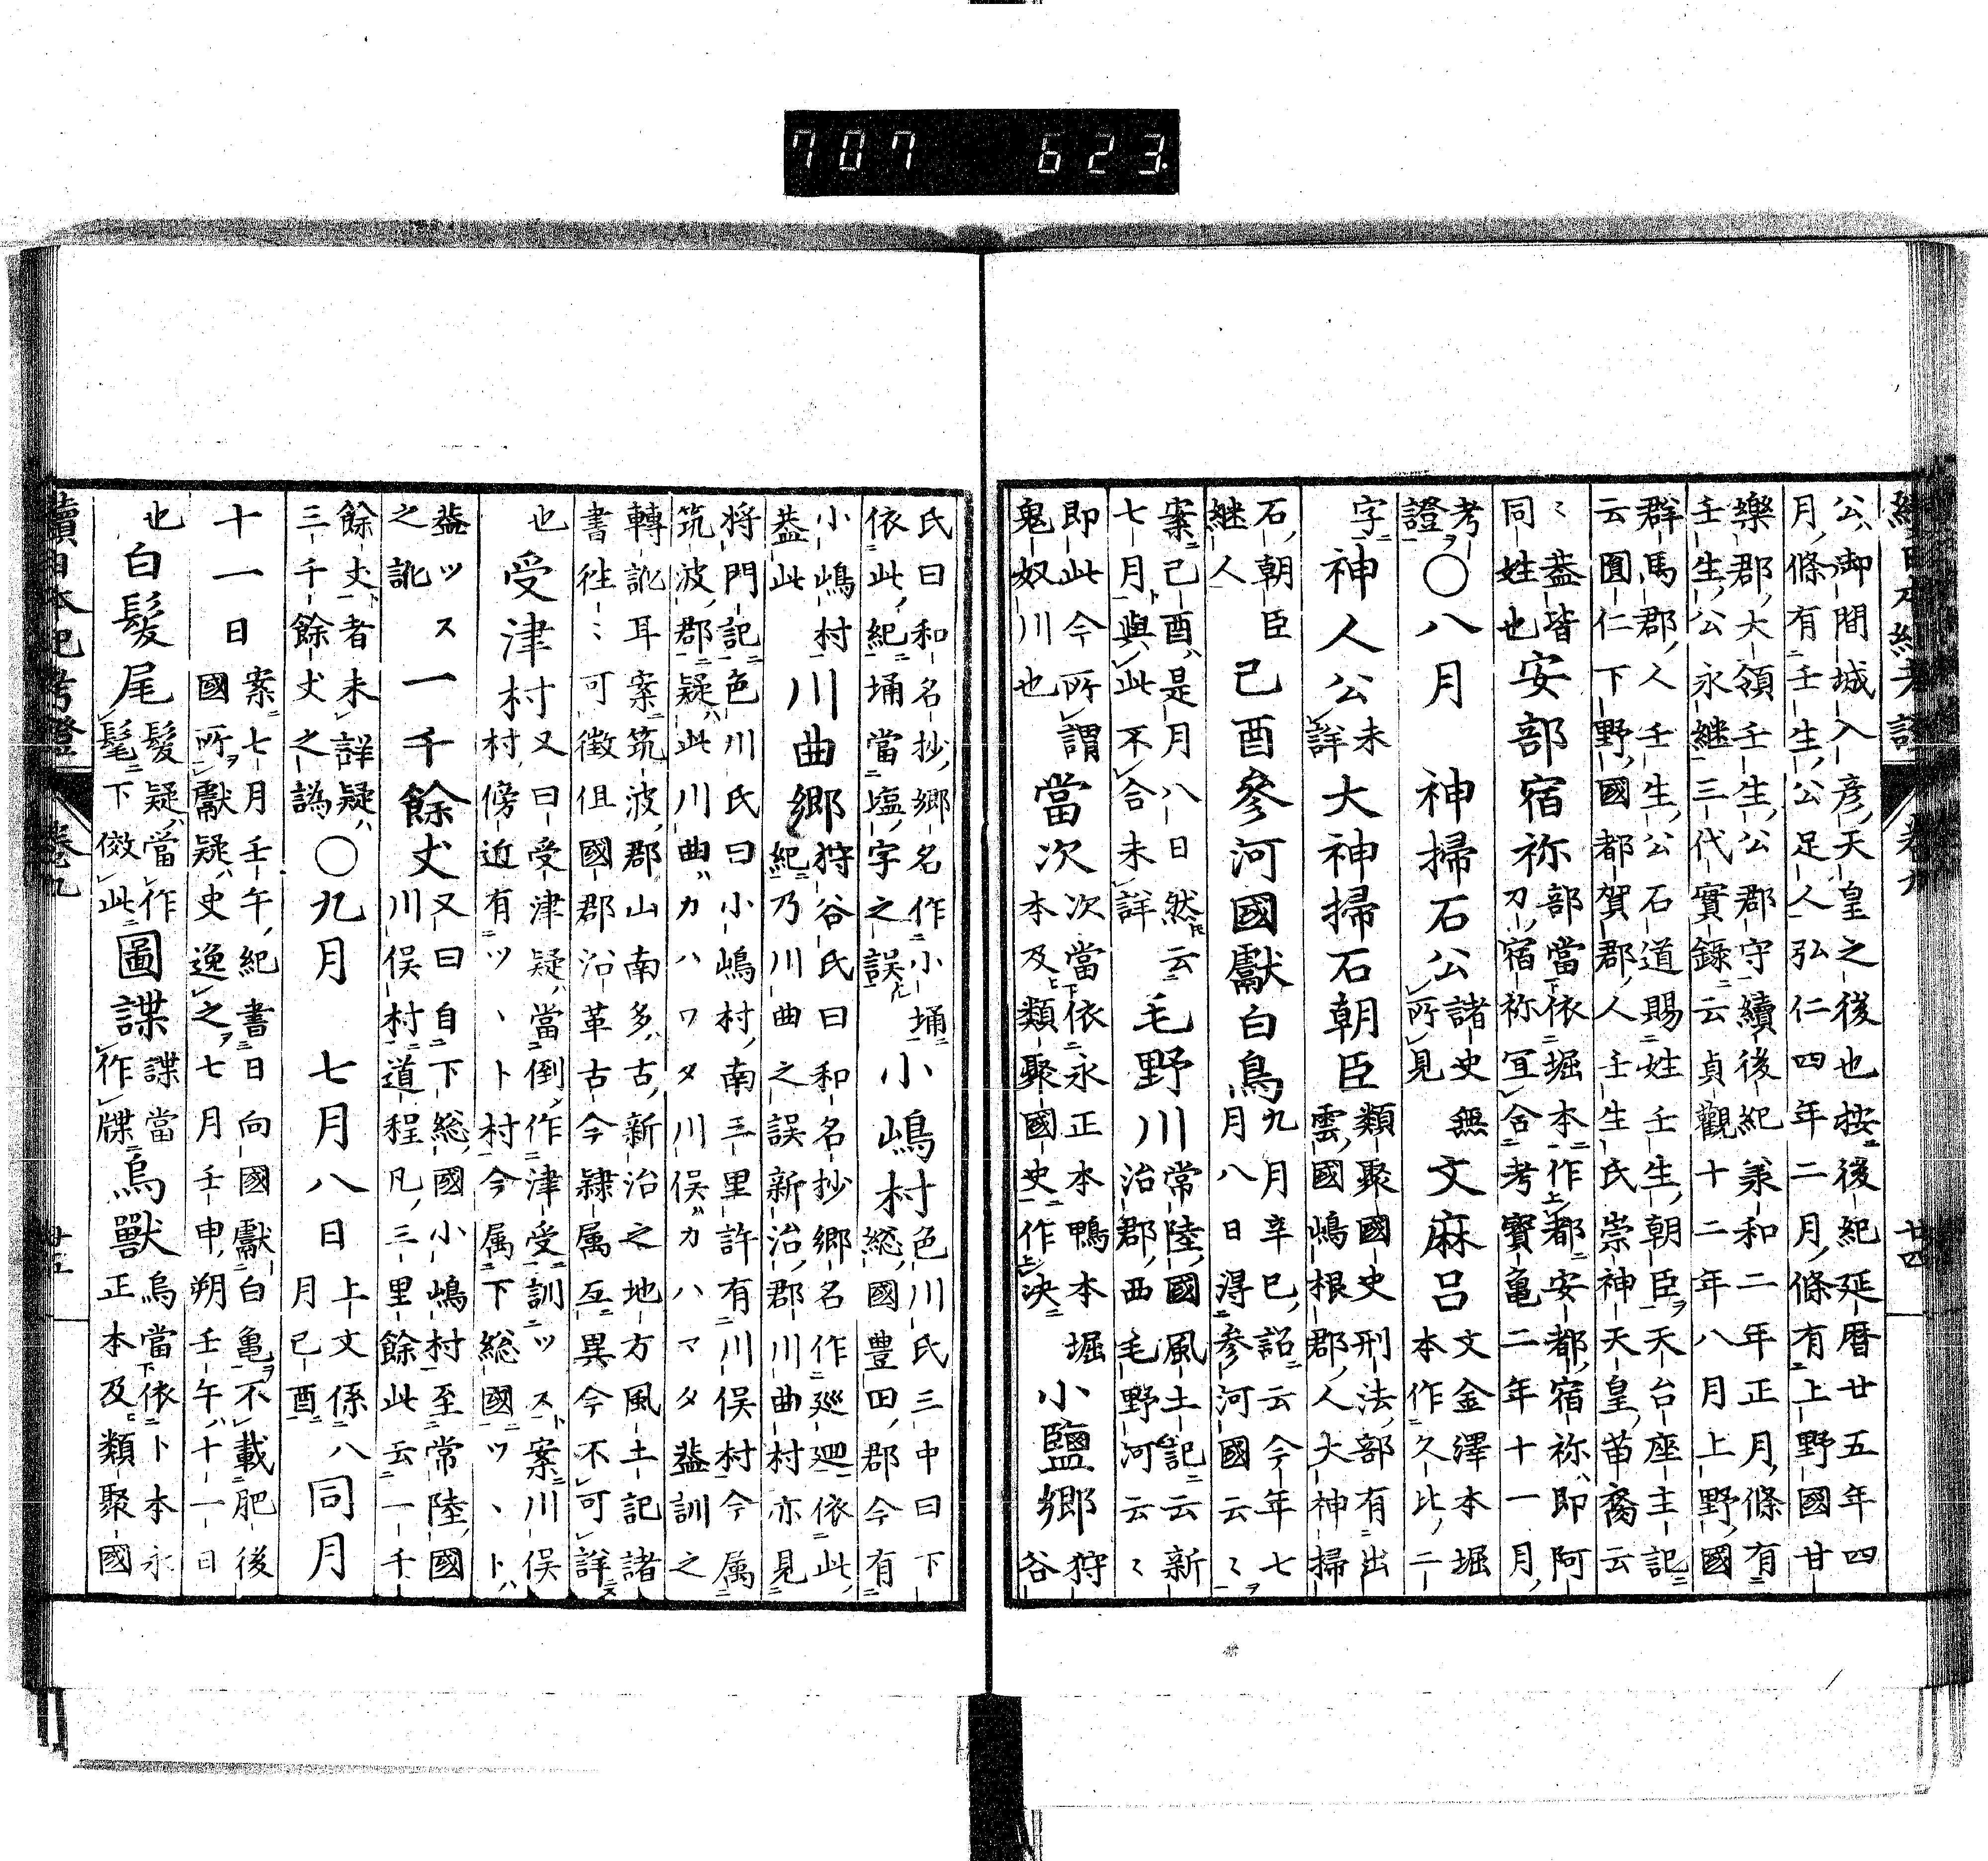 707 623.
續日本紀考證 卷九 廿四
公御間城入彥天皇之後也按後紀延曆廿五年四
月條有壬生公足人弘仁四年二月條有上野國甘
樂郡大領壬生公郡守續後紀承和二年正月條有
壬生公永繼三代實錄云貞觀十二年八月上野國
群馬郡人壬生公石道賜姓壬生朝臣天台座主記
云圓仁下野國都賀郡人壬生氏崇神天皇苗裔云
〻蓋皆
同姓也
安部宿祢
部當依堀本作都安都宿祢即阿
刀宿祢冝合考寶亀二年十一月
考
證
〇八月
神掃石公
諸史無
所見
文麻呂
文金澤本堀
本作久比二
字
神人公
未
詳
大神掃石朝臣
類聚國史刑法部有出
雲國嶋根郡人大神掃
石朝臣
継人
己酉參河國獻白鳥
九月辛巳詔云今年七
月八日得参河國云〻
案己酉是月八日然云
七月與此不合未詳
毛野川
常陸國風土記云新
治郡西毛野河云〻
即此今所謂
鬼奴川也
當次
次當依永正本鴨本堀
本及類聚國史作決
小鹽鄉
狩
谷
氏曰和名抄郷名作小埇
依此紀埇當塩字之誤
小嶋村
色川氏三中曰下
総國豊田郡今有
小嶋村
蓋此
川曲郷
狩谷氏曰和名抄郷名作廻𢌞依此
紀乃川曲之誤新治郡川曲村亦見
将門記色川氏曰小嶋村南三里許有川俣村今属
筑波郡疑此川曲カハワタ川俣カハマタ蓋訓之
轉訛耳案筑波郡山南多古新治之地方風土記諸
書徃〻可徴但國郡沿革古今隷属互異今不可詳
也
受津村
又曰受津疑當倒作津受訓ツス案川俣
村傍近有ツヽト村今属下総國ツヽト
蓋ツス
之訛
一千餘丈
又曰自下総國小嶋村至常陸國
川俣村道程凡三里餘此云一千
餘丈者未詳疑
三千餘丈之譌
〇九月
七月八日
上文係八
月己酉
同月
十一日
案七月壬午紀書日向國獻白亀不載肥後
國所獻疑史逸之七月壬申朔壬午十一日
也
白髮尾
髮疑當作
髦下傚此
圖諜
諜當
作牒
鳥獸
鳥當依卜本永
正本及類聚國
續日本紀考證 卷九 廿五